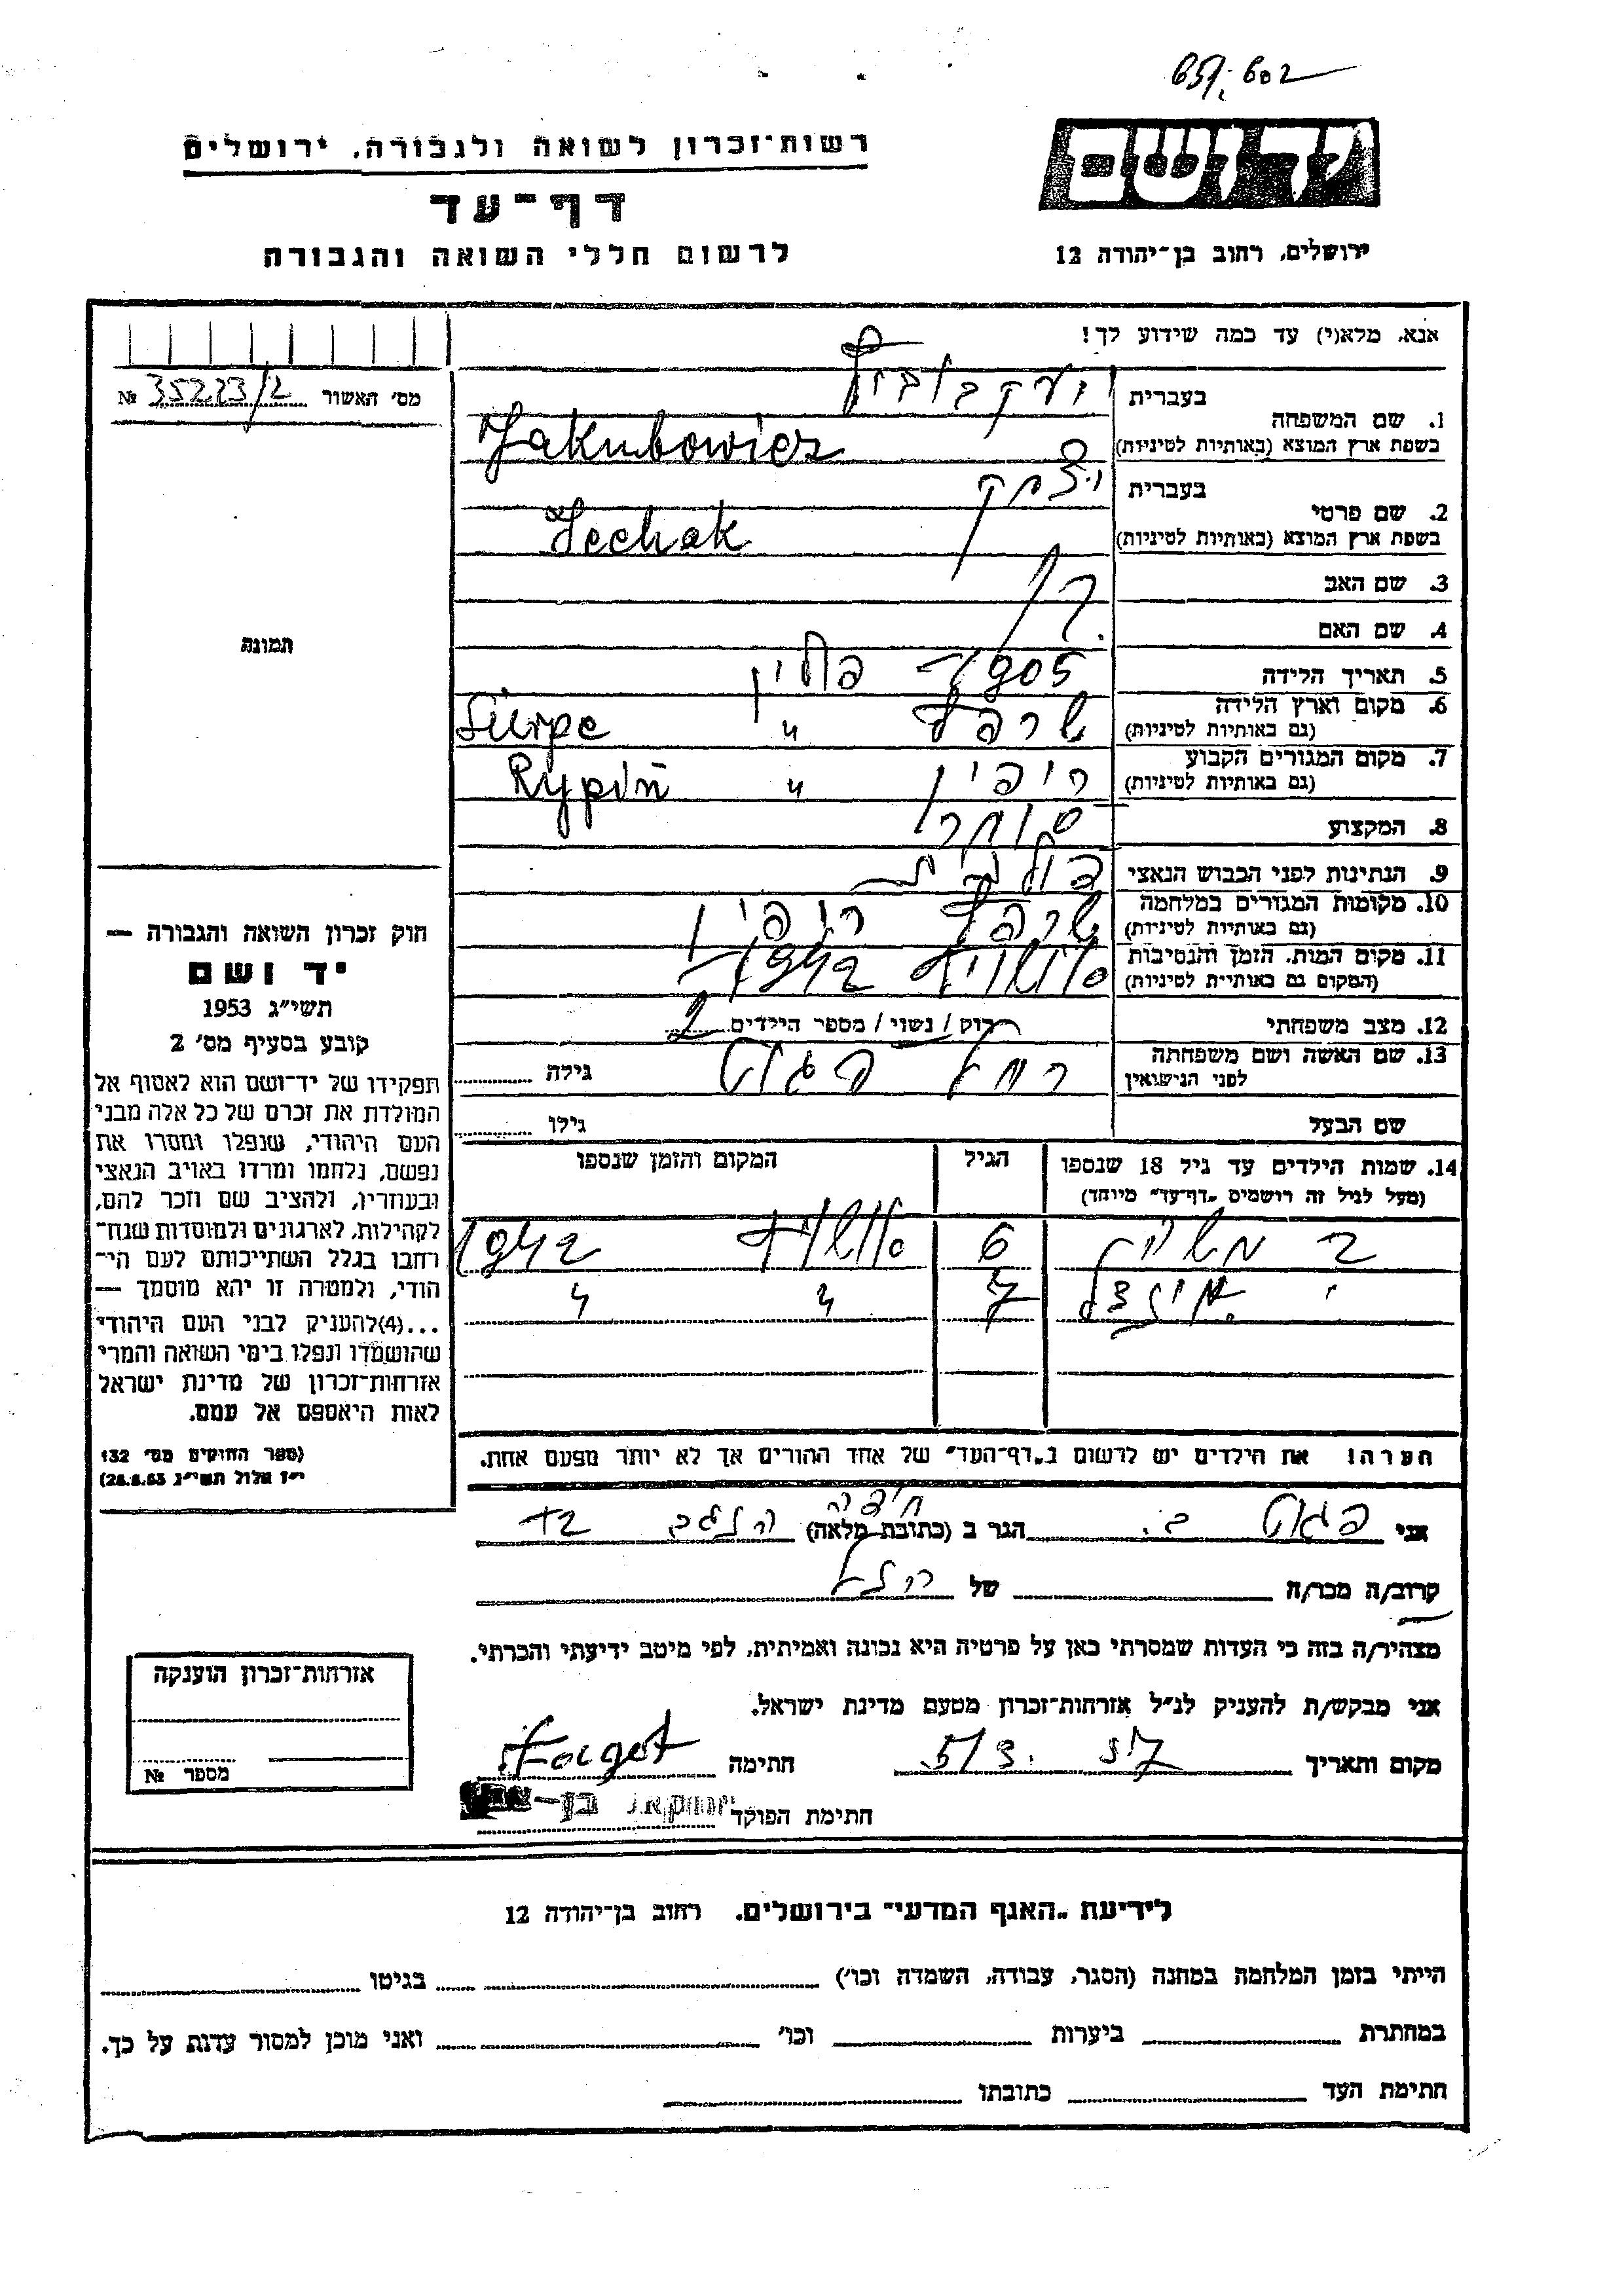 רשות־זכרון לשואה ולגבורה, ירושלים
יד ושם
דף־עד
לרשום חללי השואה והגבורה
ירושלים, רחוב בן־יהודה 12
אנא, מלא(י) עד כמה שידוע לך!
מס' האשור 35223/2 №
1. שם המשפחה
בעברית יעקבוביץ
בשפת ארץ המוצא (באותיות לטיניות) Jakubowicz
2. שם פרטי
בעברית יצחק
בשפת ארץ המוצא (באותיות לטיניות) Icchak
3. שם האב
4. שם האם
תמונה
5. תאריך הלידה 1905 פולין
6. מקום וארץ הלידה
(גם באותיות לטיניות) שרפץ " Sierpc
7. מקום המגורים הקבוע
(גם באותיות לטיניות) ריפין " Rypin
8. המקצוע סוחר
9. הנתינות לפני הכבוש הנאצי פולנית
10. מקומות המגורים במלחמה
(גם באותיות לטיניות) שרפץ ריפין
11. מקום המות, הזמן והנסיבות
(המקום גם באותיות לטיניות) 1942
12. מצב משפחתי רווק / נשוי / מספר הילדים 2
13. שם האשה ושם משפחתה
לפני הנישואין רחל פגוט גילה
שם הבעל גילו
14. שמות הילדים עד גיל 18 שנספו
(מעל לגיל זה רושמים „דף־עד" מיוחד)
הגיל
המקום והזמן שנספו
6 1942
7 " "
הערה! את הילדים יש לרשום ב„דף־העד" של אחד ההורים אך לא יותר מפעם אחת.
חוק זכרון השואה והגבורה —
יד ושם
תשי"ג 1953
קובע בסעיף מס' 2
תפקידו של יד־ושם הוא לאסוף אל
המולדת את זכרם של כל אלה מבני
העם היהודי, שנפלו ומסרו את
נפשם, נלחמו ומרדו באויב הנאצי
ובעוזריו, ולהציב שם וזכר להם,
לקהילות, לארגונים ולמוסדות שנח־
רבו בגלל השתייכותם לעם הי־
הודי, ולמטרה זו יהא מוסמך —
...(4)להעניק לבני העם היהודי
שהושמדו ונפלו בימי השואה והמרי
אזרחות־זכרון של מדינת ישראל
לאות היאספם אל עמם.
(ספר החוקים מס' 132
י"ז אלול תשי"ג 28.8.53)
אני פגוט הגר ב (כתובת מלאה) חיפה
קרוב/ה מכר/ה של
מצהיר/ה בזה כי העדות שמסרתי כאן על פרטיה היא נכונה ואמיתית, לפי מיטב ידיעתי והכרתי.
אני מבקש/ת להעניק לנ"ל אזרחות־זכרון מטעם מדינת ישראל.
מקום ותאריך 5/3. 57 חתימה Fagot
חתימת הפוקד
אזרחות־זכרון הוענקה
מספר №
לידיעת „האגף המדעי" בירושלים, רחוב בן־יהודה 12
הייתי בזמן המלחמה במחנה (הסגר, עבודה, השמדה וכו') בגיטו
במחתרת ביערות וכו' ואני מוכן למסור עדות על כך.
חתימת העד כתובתו